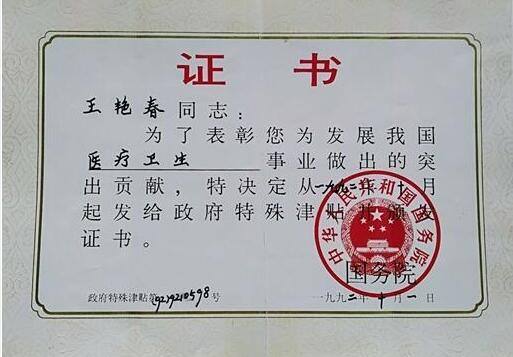 证书
王艳春同志：
为了表彰您为发展我国
医疗卫生事业做出的突
出贡献，特决定从一九九二年十月
起发给政府特殊津贴并颁发
证书。
中华人民共和国国务院
国务院
政府特殊津贴第(92)9210598号
一九九二年十月一日